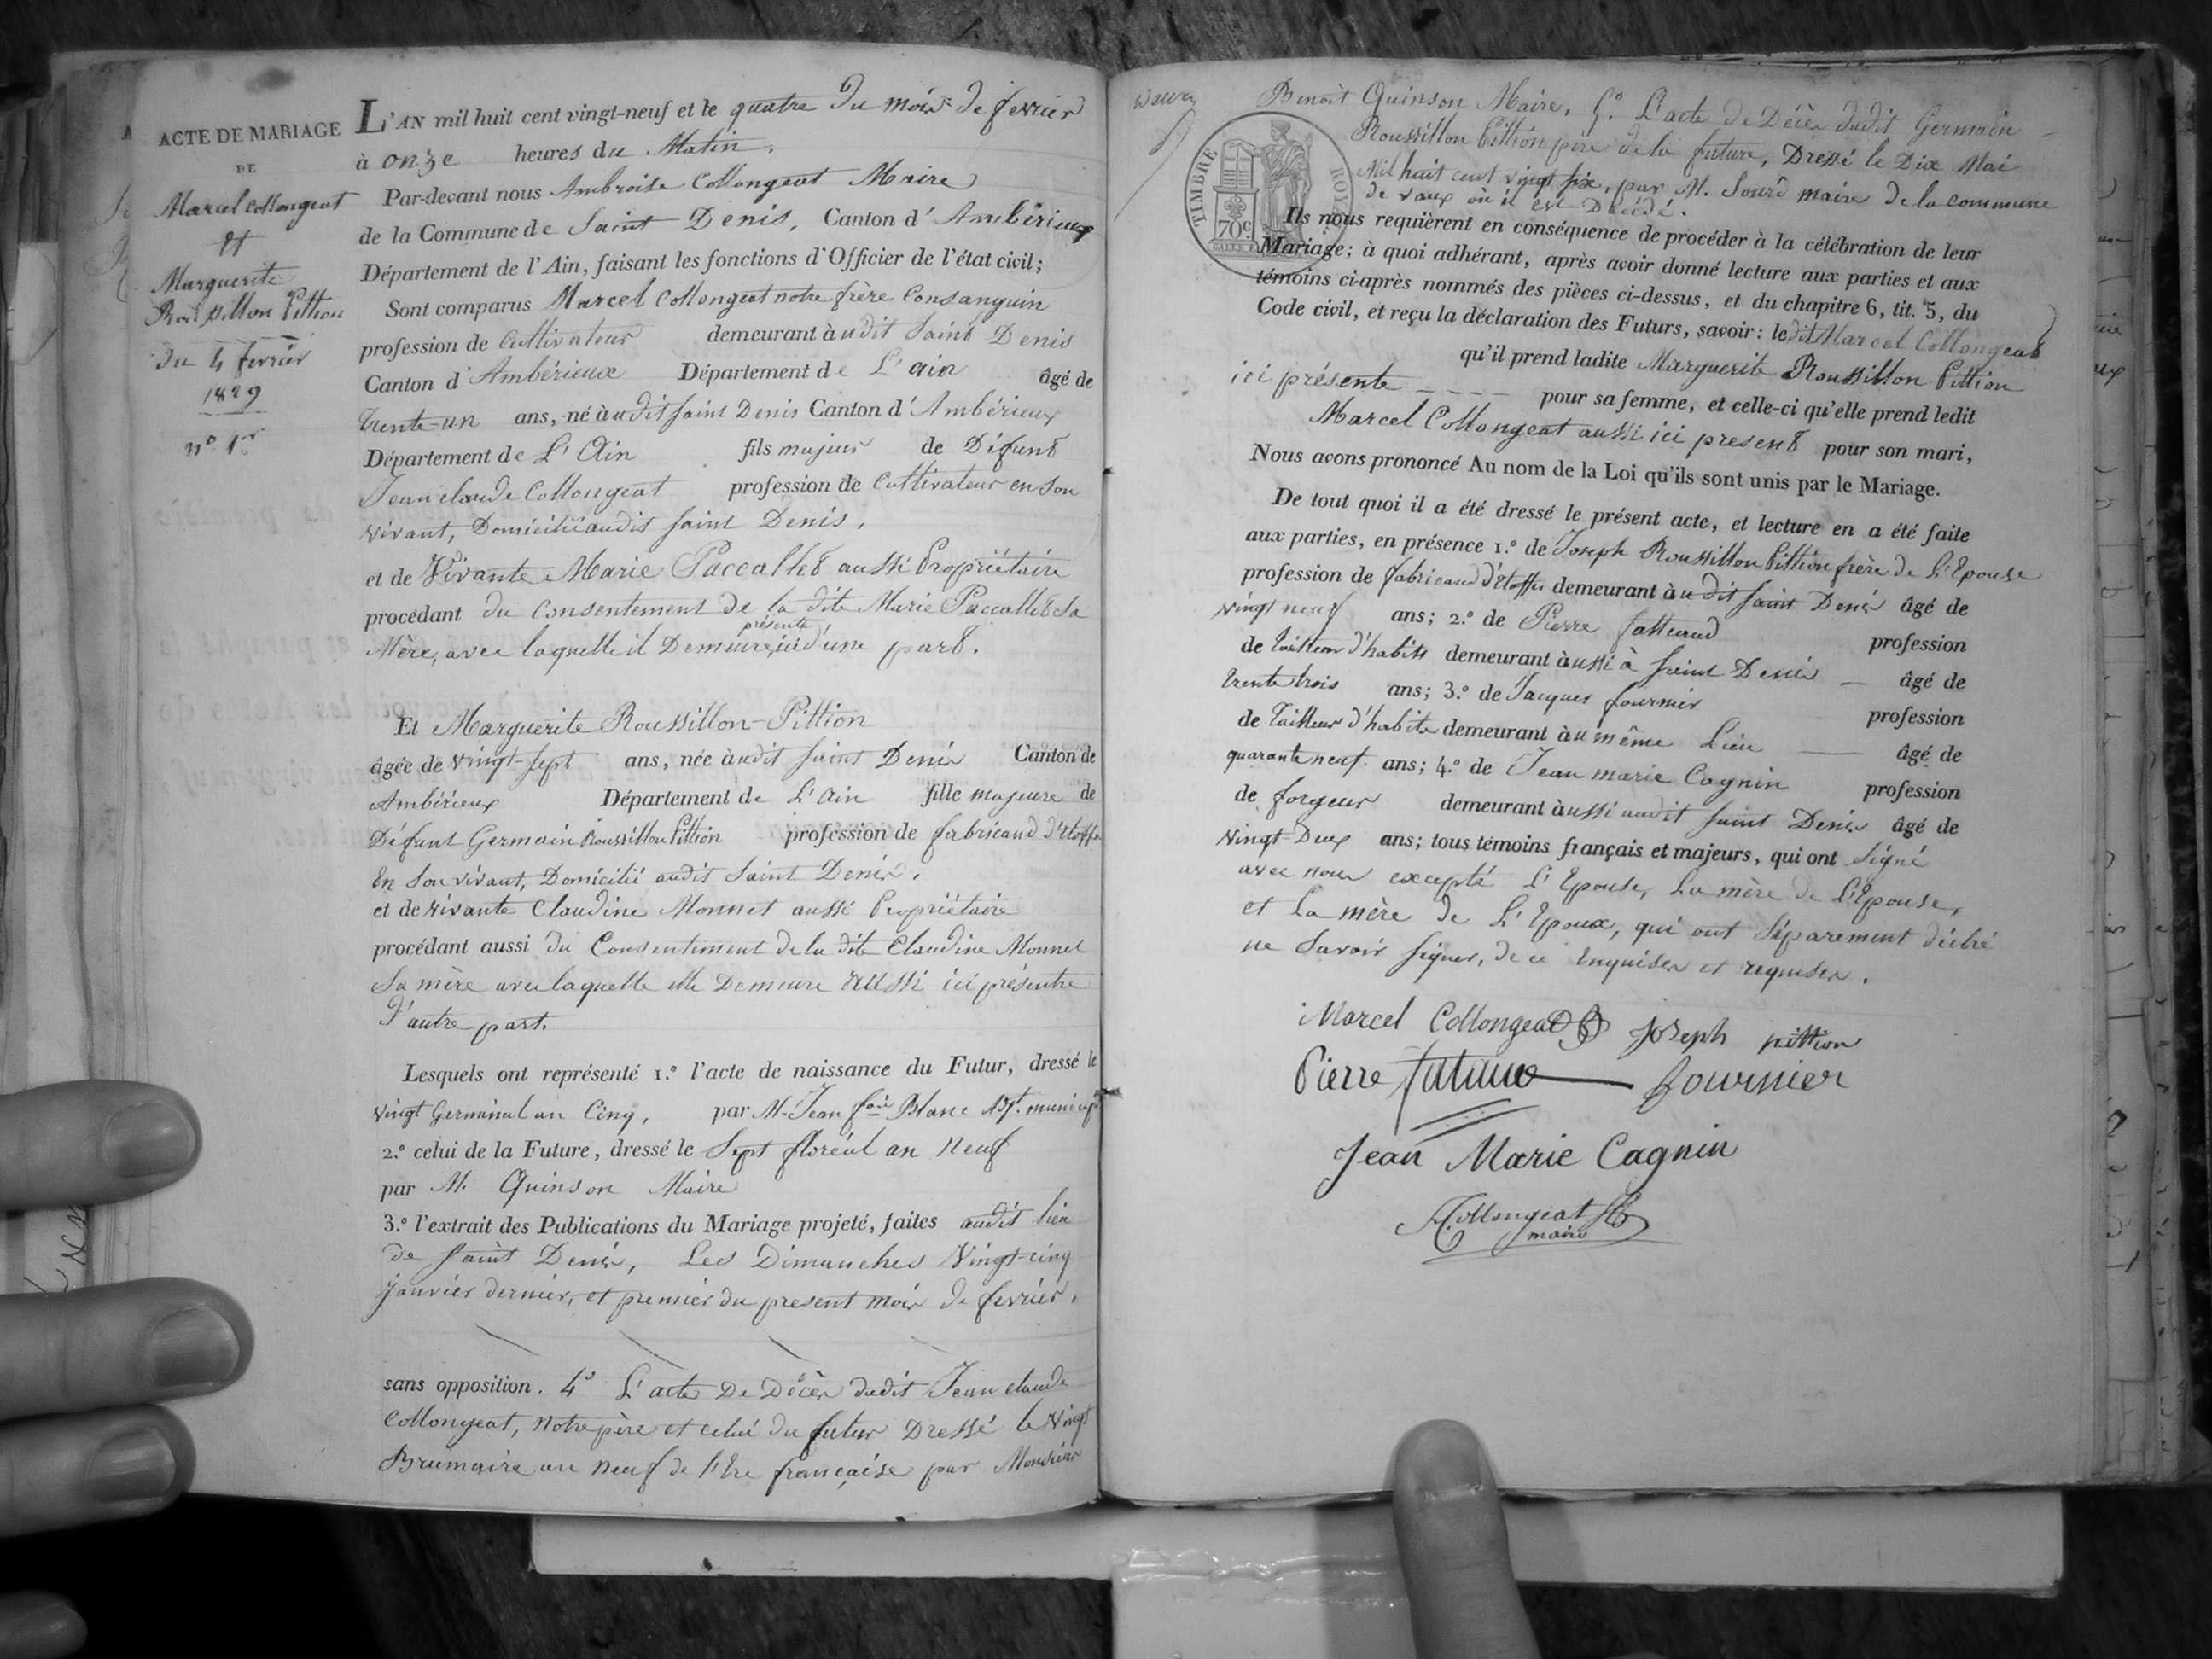 ACTE DE MARIAGE
DE
Marcel Collongeat
et
Marguerite
Roussillon Pittion
Du 4 fevrier
1829
n.o 1.er
L'AN mil huit cent vingt-neuf et le quatre du mois de fevrier
à onze heures du Matin,
Par-devant nous Ambroise Collongeat Maire
de la Commune de Saint Denis, Canton d'Ambérieux
Département de l'Ain, faisant les fonctions d'Officier de l'état civil;
Sont comparus Marcel Collongeat notre frère Consanguin
profession de Cultivateur demeurant à udit Saint Denis
Canton d'Ambérieux Département de L'ain âgé de
trente-un ans, né à udit saint Denis Canton d'Ambérieux
Département de L'Ain fils majeur de Défunt
Jean claude Collongeat profession de Cultivateur en son
vivant, Domicilié audit saint Denis,
et de Vivante Marie Paccallet aussi Propriétaire
procédant du Consentement de la dite Marie Paccallet Sa
Mère, avec laquelle il Demeure, présente ici d'une part.
Et Marguerite Roussillon-Pittion
âgée de vingt-sept ans, née à udit saint Denis Canton de
Ambérieux Département de L'Ain fille majeure de
Défunt Germain Roussillon Pittion profession de fabricand d'Etoffe
En son vivant, Domicilié audit Saint Denis,
et de vivante Claudine Monnet aussi Propriétaire
procédant aussi du Consentement de la dite Claudine Monnet
Sa mère avec laquelle elle Demeure aussi ici présente
d'autre part.
Lesquels ont représenté 1.º l'acte de naissance du Futur, dressé le
vingt Germinal an Cinq, par M. Jean f.ois Blanc Agt. municip.
2.º celui de la Future, dressé le Sept floréal an neuf
par M. Quinson Maire
3.º l'extrait des Publications du Mariage projeté, faites audit lieu
de saint Denis, Les Dimanches Vingt-cinq
janvier dernier, et premier du present mois de fevrier,
sans opposition. 4º L'acte De Décès dudit Jean claude
Collongeat, notre père et celui du futur Dressé le vingt
Brumaire an neuf de l'Ere française par Monsieur
Benoit Quinson Maire, 5.º L'acte de Décès dudit Germain
Roussillon Pittion père de la future, Dressé le Dix Mai
Mil huit cent vingt six, par M. Sourd maire de la commune
de vaux où il est Décédé.
TIMBRE ROYAL
70c
Ils nous requièrent en conséquence de procéder à la célébration de leur
Mariage; à quoi adhérant, après avoir donné lecture aux parties et aux
témoins ci-après nommés des pièces ci-dessus, et du chapitre 6, tit. 5, du
Code civil, et reçu la déclaration des Futurs, savoir: ledit Marcel Collongeat
qu'il prend ladite Marguerite Roussillon Pittion
ici présente pour sa femme, et celle-ci qu'elle prend ledit
Marcel Collongeat aussi ici present pour son mari,
Nous avons prononcé Au nom de la Loi qu'ils sont unis par le Mariage.
De tout quoi il a été dressé le présent acte, et lecture en a été faite
aux parties, en présence 1.º de Joseph Roussillon Pittion frère de L'Epouse
profession de fabricand d'Etoffes demeurant à udit saint Denis âgé de
vingt neuf ans; 2.º de Pierre profession
de tailleur d'habits demeurant à ussi à saint Denis âgé de
trente trois ans; 3.º de Jacques fournier profession
de tailleur d'habits demeurant à u même Lieu âgé de
quarante neuf ans; 4.º de Jean marie Cagnin profession
de forgeur demeurant à ussi audit saint Denis âgé de
vingt-Deux ans; tous témoins français et majeurs, qui ont signé
avec nous excepté L'Epouse, La mère de L'Epouse,
et La mère de L'Epoux, qui ont séparement déclré
ne savoir signer, de ce enquises et requises.
Marcel Collongeat Joseph pittion
Pierre fournier
Jean Marie Cagnin
A. Collongeat
maire